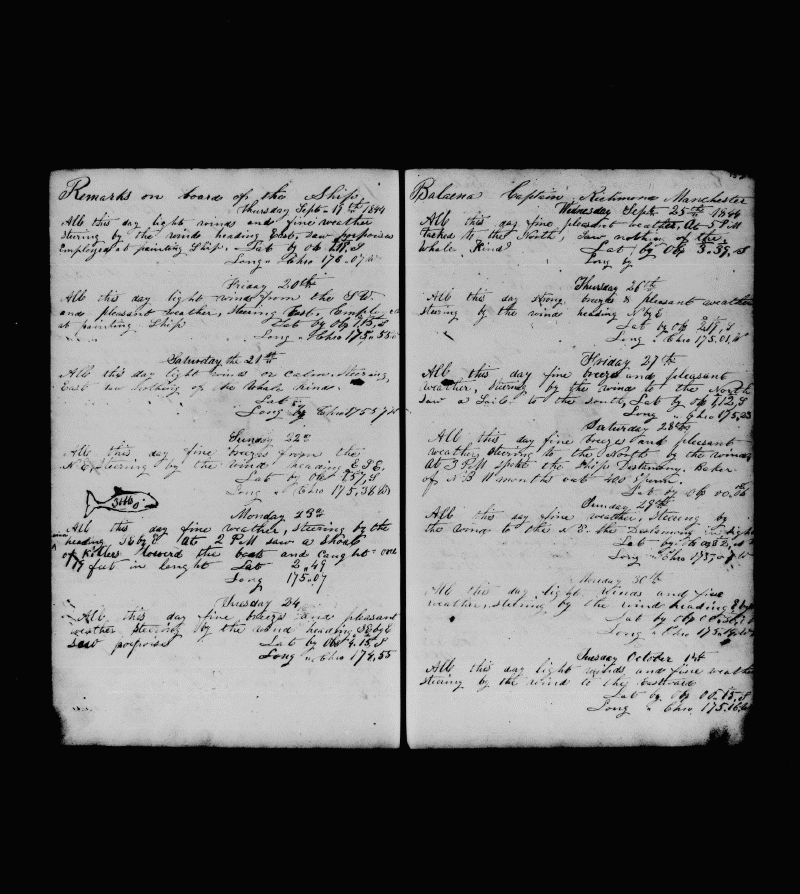 Remarks on board of the Ship
Thursday Sept 19th 1844
All this day light winds and fine weather
stering by the wind heading East, saw porpoises
Employed at painting Ship. Lat by ob 2.18.S
Long " Chro 176.07 W
Friday 20th
All this day light winds from the SW.
and pleasant weather, steering East. Employed
at painting Ship Lat by Ob 1.15.S
Long " Chro 175.55
Saturday the 21st
All this day light winds or calm Steering
East saw nothing of the Whale kind.
Lat
Long by Chro 175 57 W
Sunday 22d
All this day fine breezes from the
N E, steering by the wind heading E S E.
Lat by Ob 1.57,S
Long " Chro 175,38 W
Monday 23d
All this day fine weather, Steering by the
heading SEbyE At 2 P.M saw a shoal
of Killers Lowered the boats and Caught one
19 feet in lenght Lat 2.49
Long 175.07
Tuesday 24
All this day fine breezes and pleasant
weather steering by the wind heading SEbyE
Saw porpoises Lat by Ob 4.15.S
Long " Chro 174,55
Balaena Captain Richmond Manchester
Wednesday Sept 25th 1844
All this day fine pleasant weather, At 5 P.M
tacked to the North, Saw nothing of the
Whale Kind Lat by Ob 3.39,S
Long by
Thursday 26th
All this day strong breezes & pleasant weather
stering by the wind heading N by E
Lat by ob 2.17,S
Long " Chro 175.01,W
Friday 27th
All this day fine breezes and pleasant
weather, steering by the wind to the North
saw a Sail to the south, Lat by ob 1.12,S
Long " Chro 175,23
Saturday 28th
All this day fine breezes and pleasant
weather steering to the North by the wind
At 3 P.M spoke the Ship Destomy. Baker
of N B 11 months out 400 Sperm.
Lat by Ob 00.06
Sunday 29th
All this day fine weather, Steering by
the wind to the N E. the
Lat by
Long " Chro
Monday 30th
All this day light winds and fine
weather, stering by the wind heading E by
Lat by Ob
Long " Chro 175.
Tuesday October 1st
All this day light winds and fine weather
steering by the wind to the Eastward
Lat by Ob 00.15,S
Long " Chro 175.16,W